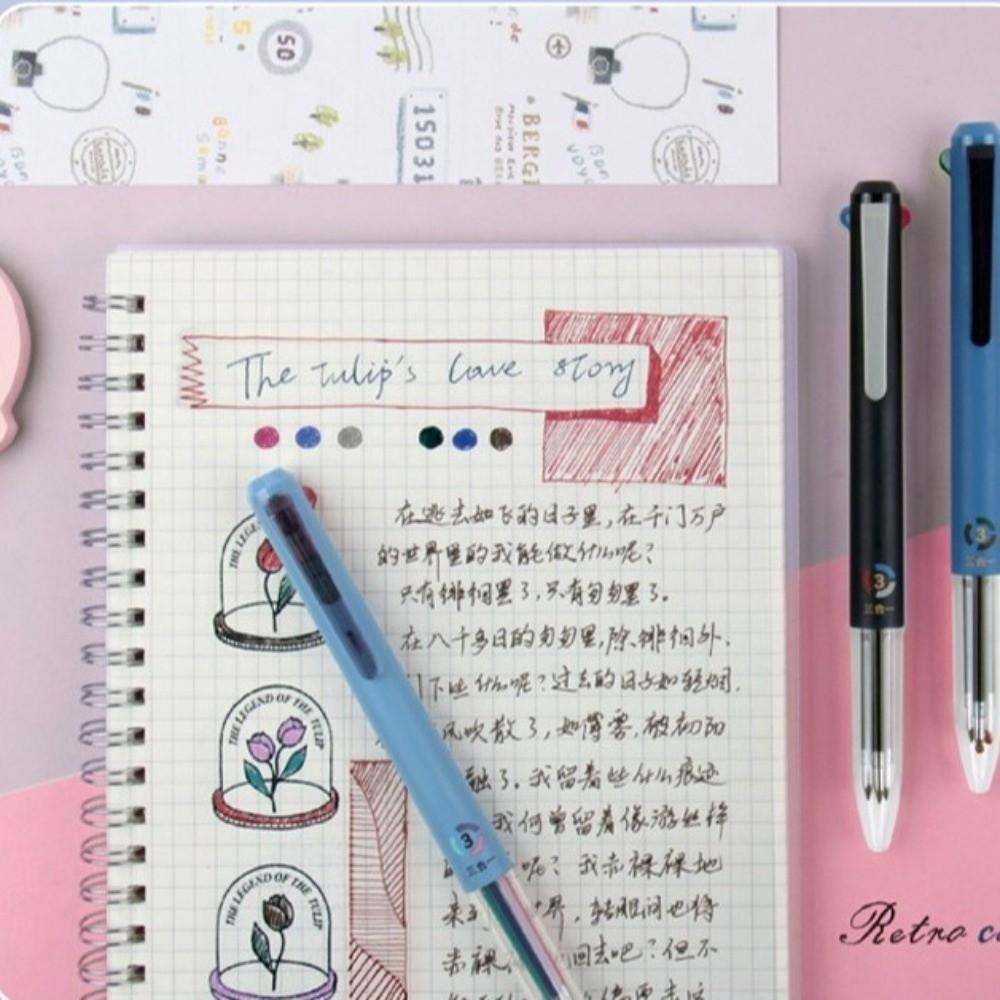 50
15031
BERGE
Bon
voyo
The Tulip's Love story
THE LEGEND OF THE TULIP
THE LEGEND OF THE TULIP
在逃去如飞的日子里,在千门万户
的世界里的我能做什么呢?
只有徘徊罢了,只有匆匆罢了。
在八千多日的匆匆里,除徘徊外,
下些什么呢?过去的日子如轻烟,
风吹散了,如薄雾,被初阳
融了。我留着些什么痕迹
我何曾留着像游丝样
呢?我赤裸裸地
来 界,转眼间也将
赤裸 回去吧?但不
3
三合一
3
三合一
3
三合一
Retro